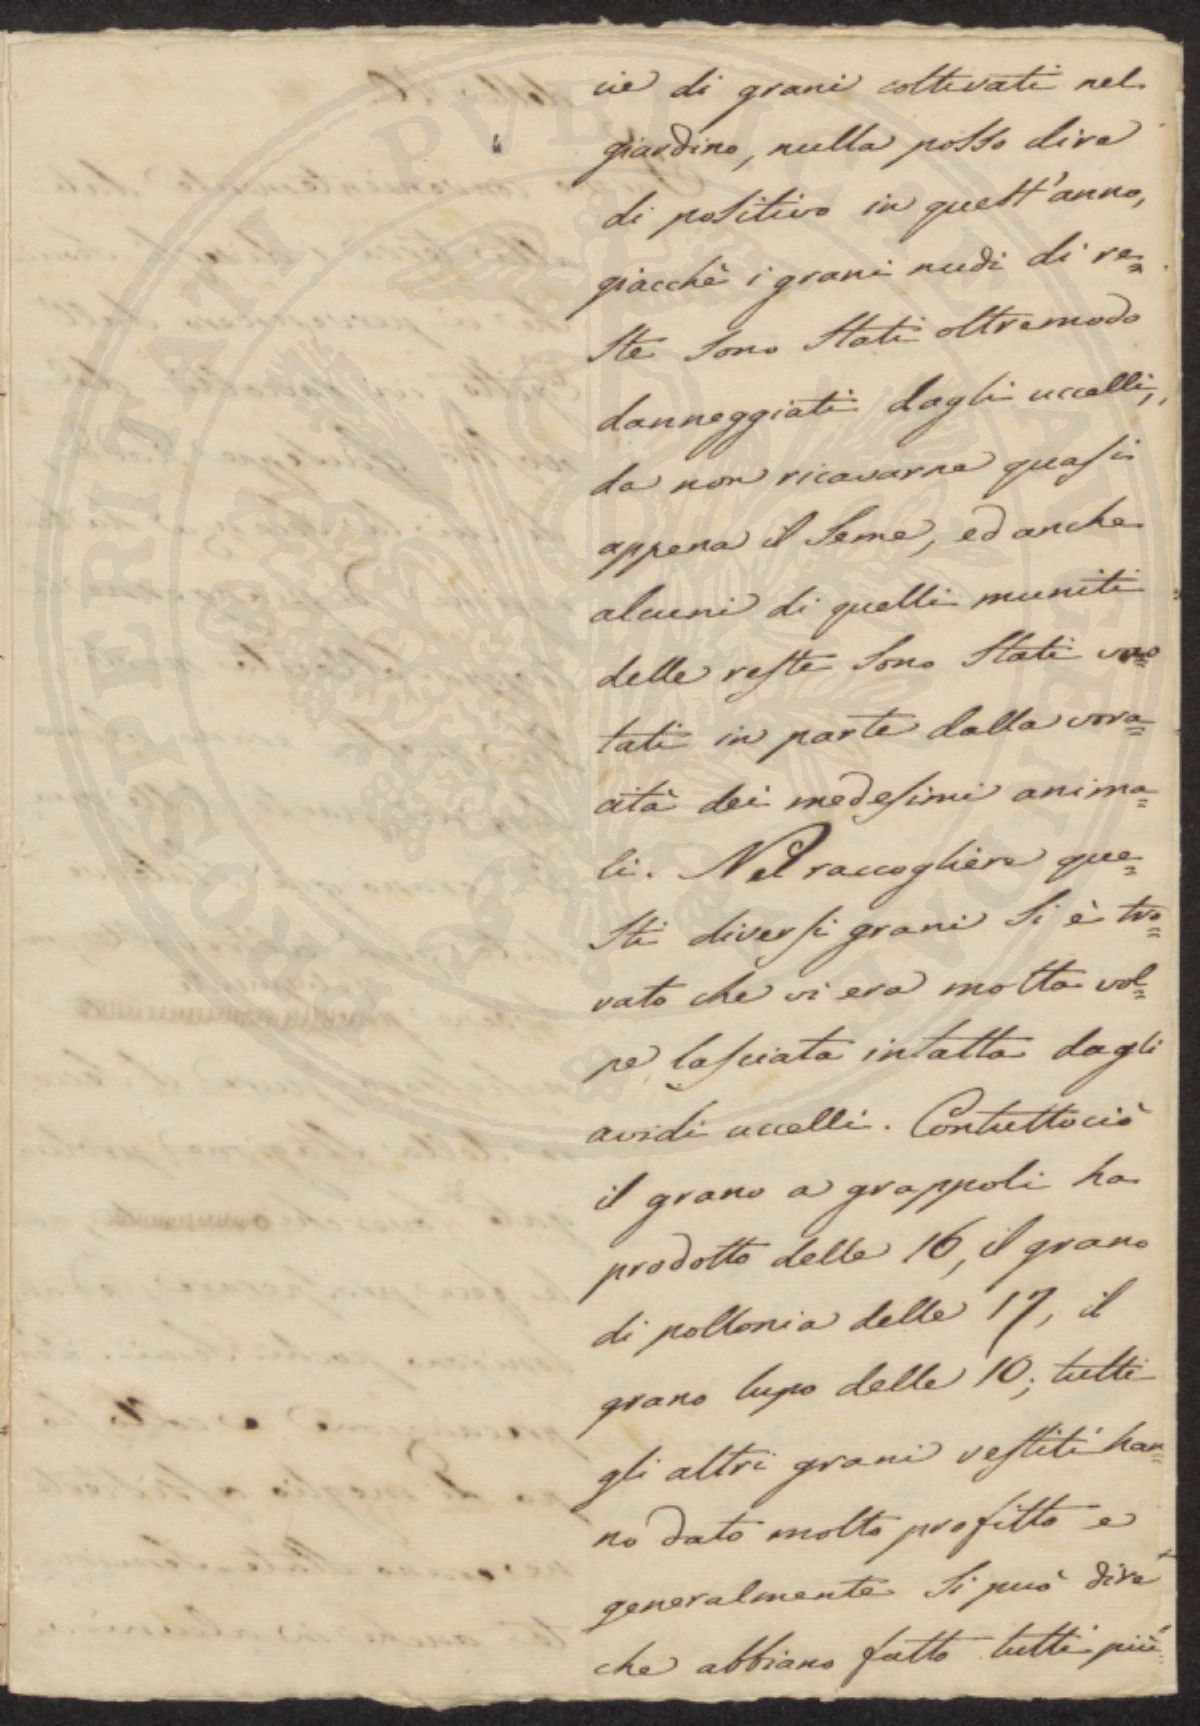 cie di grani coltivati nel
giardino, nulla posso dire
di positivo in quest'anno,
giacchè i grani nudi di re=
ste sono stati oltremodo
danneggiati dagli uccelli,
da non ricavarne quasi
appena il seme, ed anche
alcuni di quelli muniti
delle reste sono stati vuo=
tati in parte dalla vora=
cità dei medesimi anima=
li. Nel raccogliere que=
sti diversi grani si è tro=
vato che vi era molta vol=
pe lasciata intatta dagli
avidi uccelli. Contuttociò
il grano a grappoli ha
prodotto delle 16, il grano
di pollonia delle 17, il
grano lupo delle 10; tutti
gli altri grani vestiti han=
no dato molto profitto e
generalmente si può dire
che abbiano fatto tutti più
PROSPERITATI PVBLICAE AVGENDAE